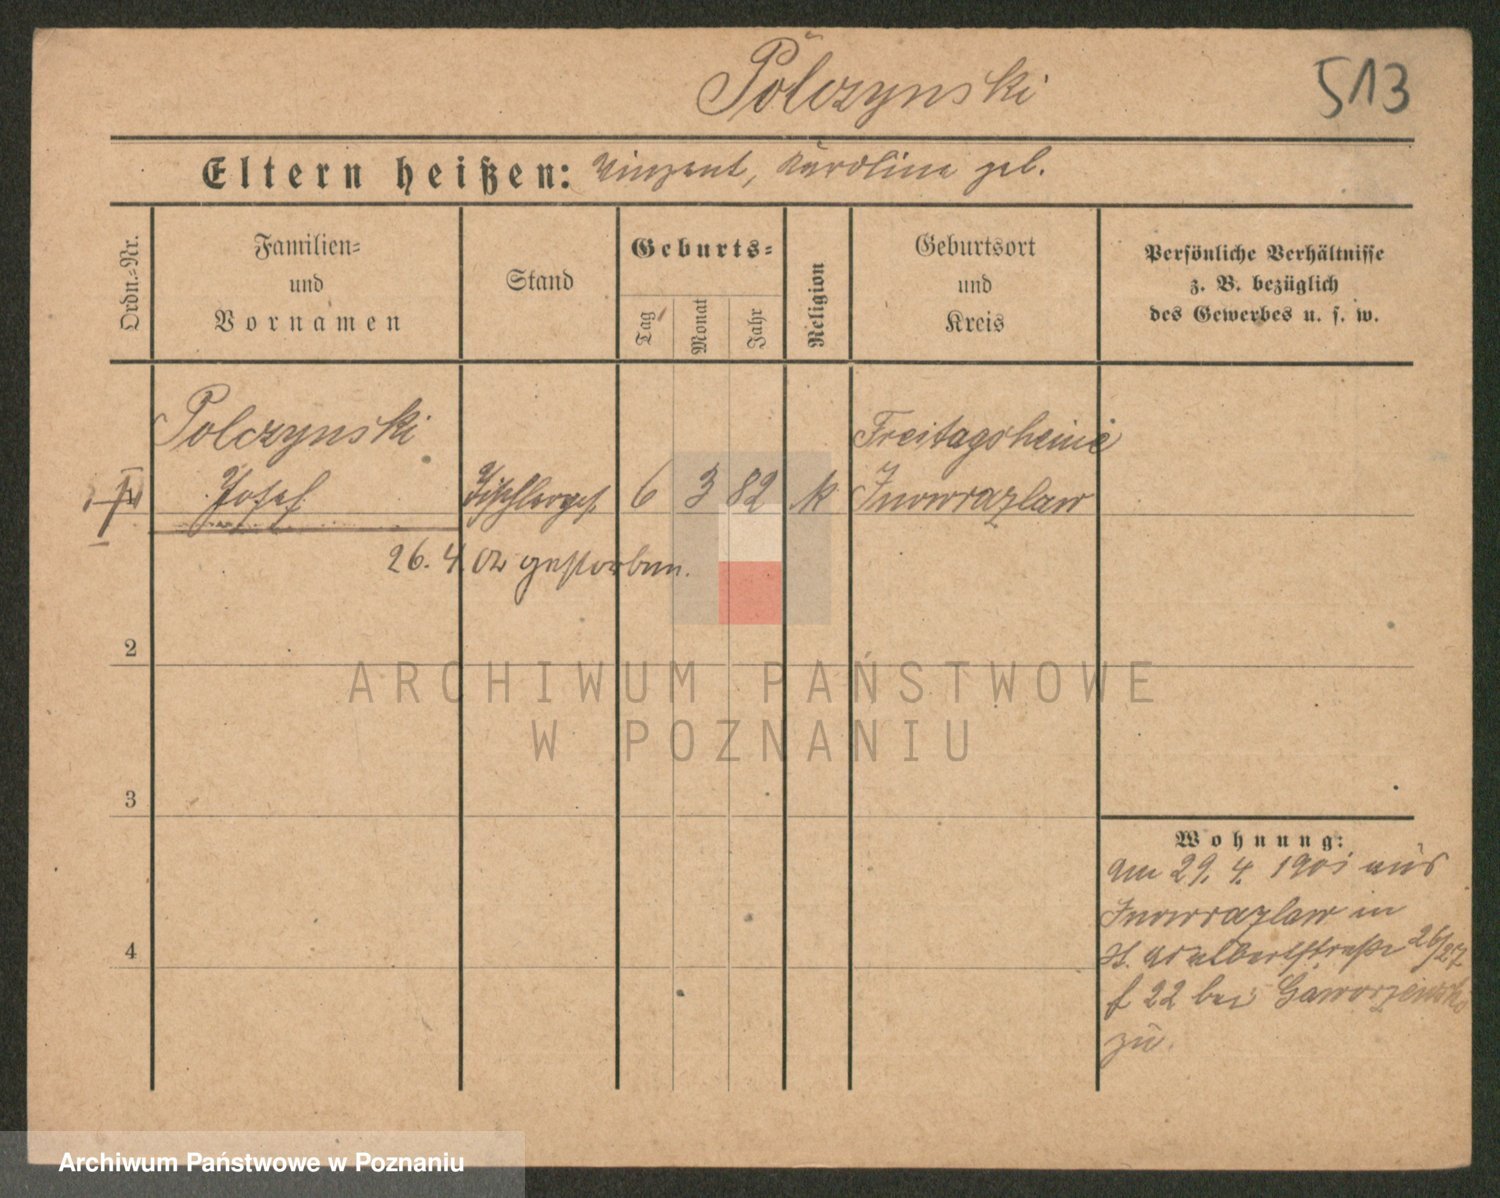 Polczynski
513
Eltern heißen: Vinzent, Karoline geb.
Ordn.=Nr.
Familien=
und
Vornamen
Stand
Geburts=
Tag
Monat
Jahr
Religion
Geburtsort
und
Kreis
Persönliche Verhältnisse
z. B. bezüglich
des Gewerbes u. s. w.
Polczynski
Josef
Tischlerges.
6 3 82
k
Freitagsheim
Inowrazlaw
26. 4. 02 gestorben.
2
3
4
Wohnung:
am 29. 4. 1901 aus
Inowrazlaw in
St. Adalbertstraße 26/27
f 22 bei Gaworzewski
zu.
ARCHIWUM PAŃSTWOWE
W POZNANIU
Archiwum Państwowe w Poznaniu